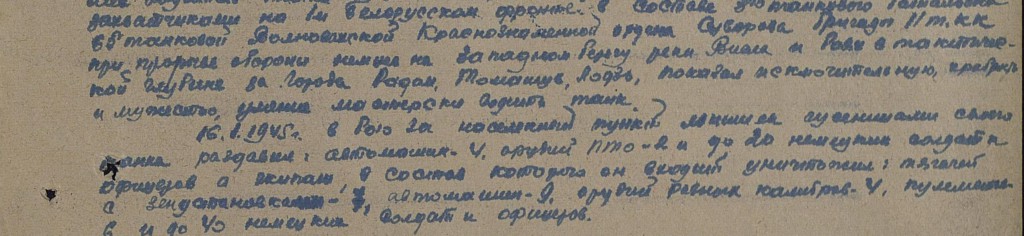 захватчиками на 1м Белорусском фронте в составе танкового батальона
65 танковой Волновахской Краснознаменной ордена Суворова бригады 11 т.к.к
при прорыве обороны немцев на западном берегу реки Висла и боях в тактичес-
кой глубине за города Радом, Томашув, Лодзь, показал исключительную, храбрость
и мужество, умение мастерски водить танк.
16.1.1945г. в бою за населенный пункт гусеницами своего
танка раздавил: автомашин- 4, орудий ПТО-2 и до 20 немецких солдат и
офицеров а экипаж, в состав которого он входит уничтожил: тягачей
с автомашин-9, орудий разных калибров-4, пулеметов-
6 и до 40 немецких солдат и офицеров.